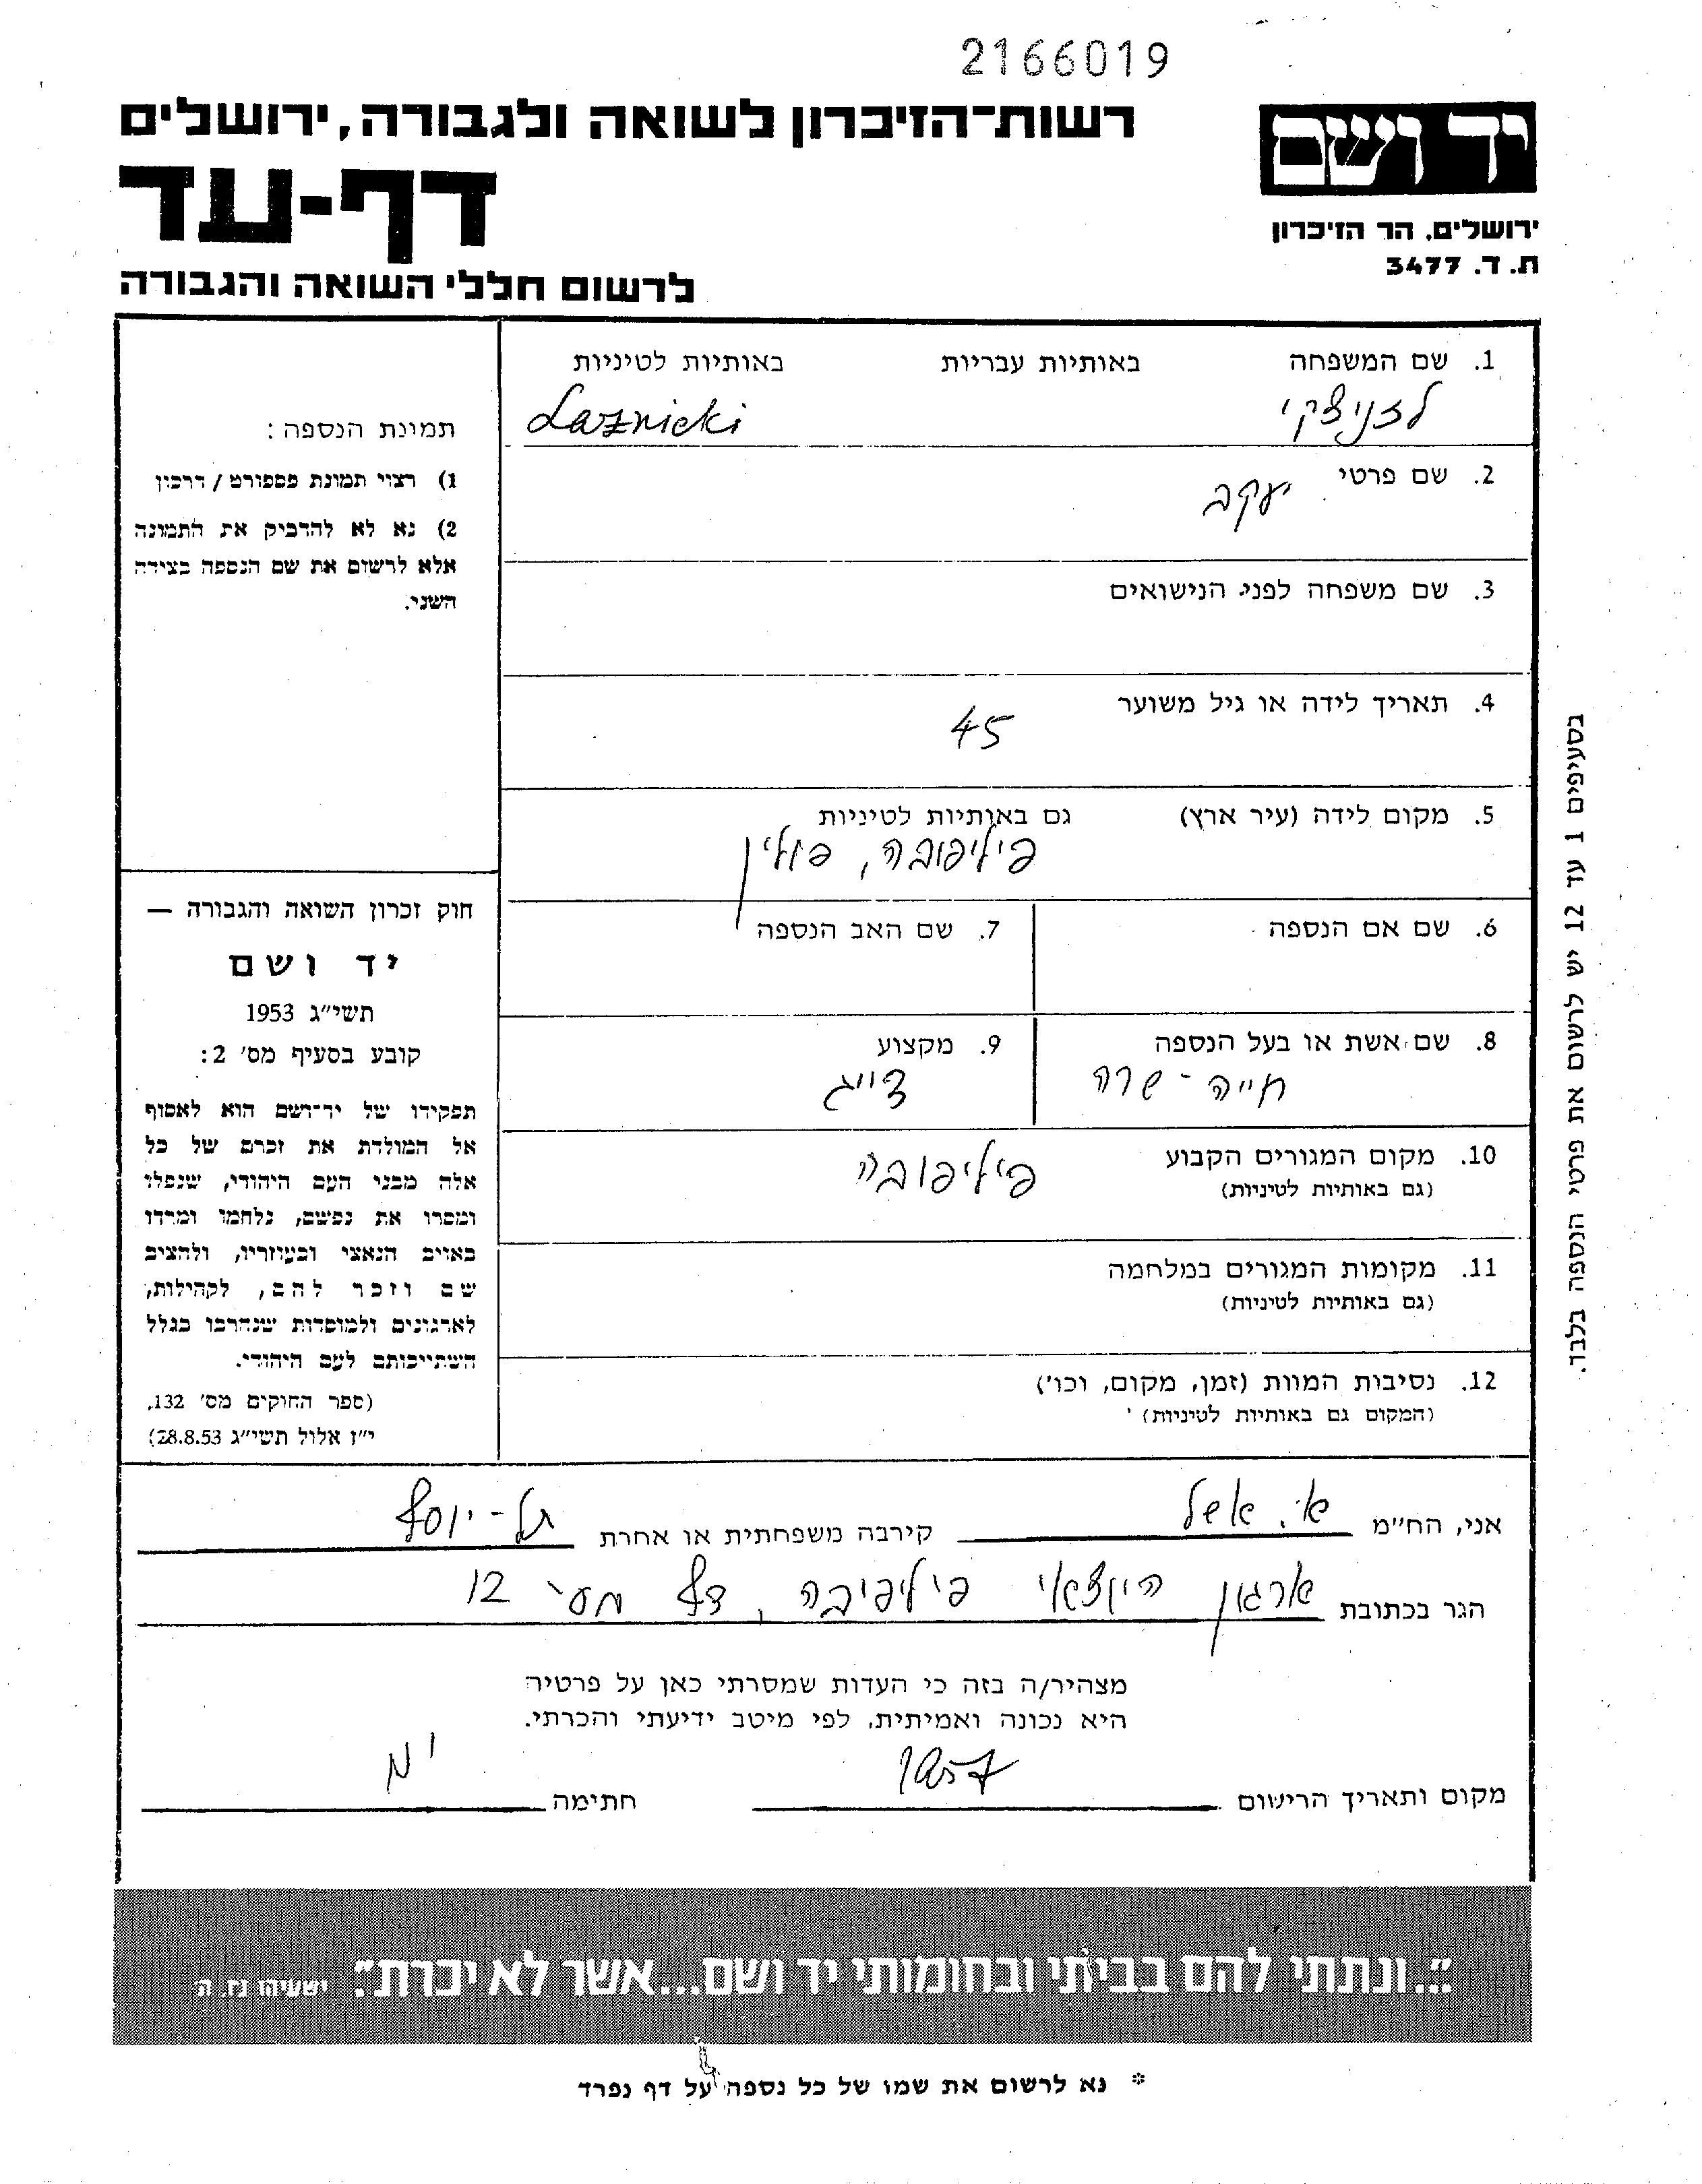 2166019
רשות-הזיכרון לשואה ולגבורה, ירושלים
דף-עד
לרשום חללי השואה והגבורה
יד ושם
ירושלים, הר הזיכרון
ת. ד. 3477
1. שם המשפחה באותיות עבריות באותיות לטיניות
לזניצקי Laznicki
2. שם פרטי יעקב
3. שם משפחה לפני הנישואים
4. תאריך לידה או גיל משוער
45
5. מקום לידה (עיר ארץ) גם באותיות לטיניות
פיליפובה, פולין
6. שם אם הנספה 7. שם האב הנספה
8. שם אשת או בעל הנספה 9. מקצוע
חייה - שרה דייג
10. מקום המגורים הקבוע
(גם באותיות לטיניות)
פיליפובה
11. מקומות המגורים במלחמה
(גם באותיות לטיניות)
12. נסיבות המוות (זמן, מקום, וכו')
(המקום גם באותיות לטיניות)
תמונת הנספה:
1) רצוי תמונת פספורט / דרכון
2) נא לא להדביק את התמונה
אלא לרשום את שם הנספה בצידה
השני.
חוק זכרון השואה והגבורה —
יד ושם
תשי״ג 1953
קובע בסעיף מס' 2:
תפקידו של יד-ושם הוא לאסוף
אל המולדת את זכרם של כל
אלה מבני העם היהודי, שנפלו
ומסרו את נפשם, נלחמו ומרדו
באויב הנאצי ובעוזריו, ולהציב
שם וזכר להם, לקהילות,
לארגונים ולמוסדות שנחרבו בגלל
השתייכותם לעם היהודי.
(ספר החוקים מס' 132,
י״ז אלול תשי״ג 28.8.53)
בסעיפים 1 עד 12 יש לרשום את פרטי הנספה בלבד.
אני, הח״מ א. אשל קירבה משפחתית או אחרת תל-יוסף
הגר בכתובת ארגון היוצאי פיליפובה, דף מס' 12
מצהיר/ה בזה כי העדות שמסרתי כאן על פרטיה
היא נכונה ואמיתית, לפי מיטב ידיעתי והכרתי.
מקום ותאריך הרישום 1957 חתימה
״...ונתתי להם בביתי ובחומותי יד ושם...אשר לא יכרת״. ישעיהו נו, ה
* נא לרשום את שמו של כל נספה על דף נפרד